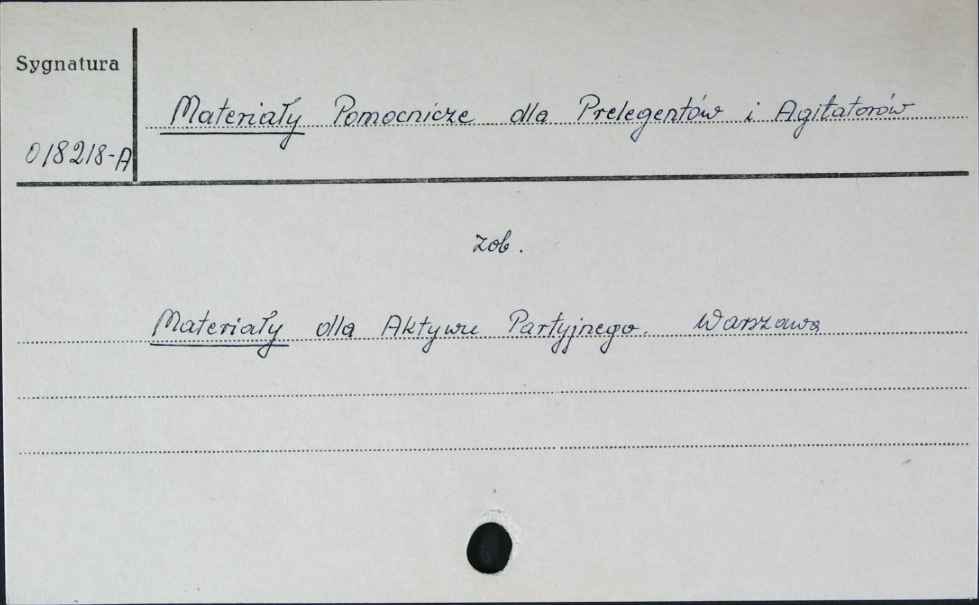 Sygnatura
Materiały Pomocnicze dla Prelegentów i Agitatorów
018218-A
zob.
Materiały dla Aktywu Partyjnego. Warszawa